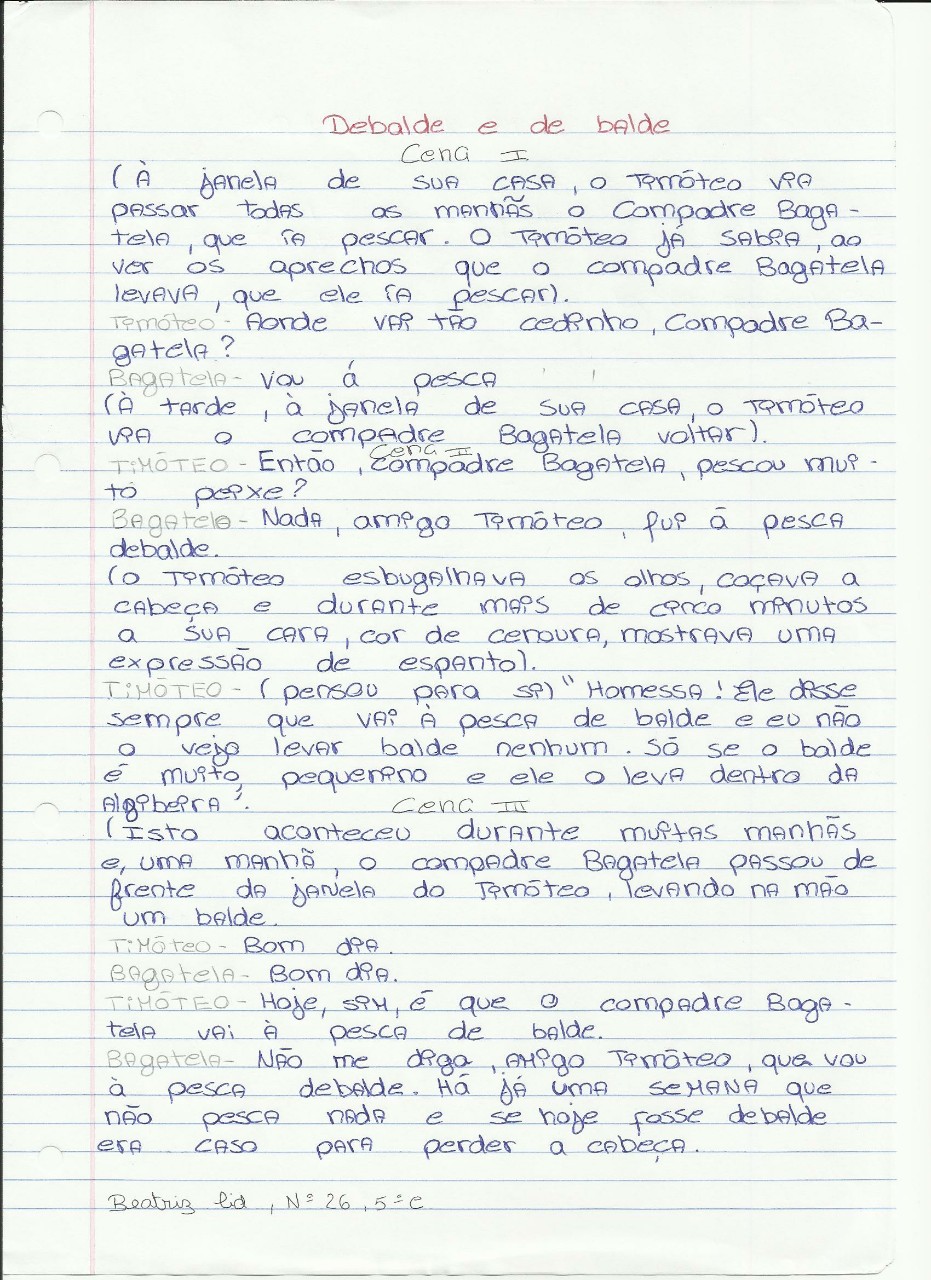 Debalde e de balde
Cena I
(À janela de sua casa, o Timóteo via
passar todas as manhãs o Compadre Baga-
tela, que ía pescar. O Timóteo já sabia, ao
ver os aprechos que o compadre Bagatela
levava, que ele ía pescar).
Timóteo - Aonde vai tão cedinho, Compadre Ba-
gatela?
Bagatela - Vou á pesca
(À tarde, à janela de sua casa, o Timóteo
via o compadre Bagatela voltar).
Cena II
TiMÓTEO - Então, Compadre Bagatela, pescou mui-
to peixe?
Bagatela - Nada, amigo Timóteo, fui á pesca
debalde.
(o Timóteo esbugalhava os olhos, coçava a
cabeça e durante mais de cinco minutos
a sua cara, cor de cenoura, mostrava uma
expressão de espanto).
TiMÓTEO - (pensou para si) "Homessa! Ele disse
sempre que vai à pesca de balde e eu não
o vejo levar balde nenhum. Só se o balde
é muito pequenino e ele o leva dentro da
Algibeira".
Cena III
(Isto aconteceu durante muitas manhãs
e, uma manhã, o compadre Bagatela passou de
frente da janela do Timóteo, levando na mão
um balde.
TiMÓTEO - Bom dia.
BAgatela - Bom dia.
TiMÓTEO - Hoje, sim, é que o compadre Baga-
tela vai à pesca de balde.
Bagatela - Não me diga, amigo Timóteo, que vou
à pesca debalde. Há já uma semana que
não pesca nada e se hoje fosse debalde
era caso para perder a cabeça.
Beatriz Cid, Nº 26, 5º C